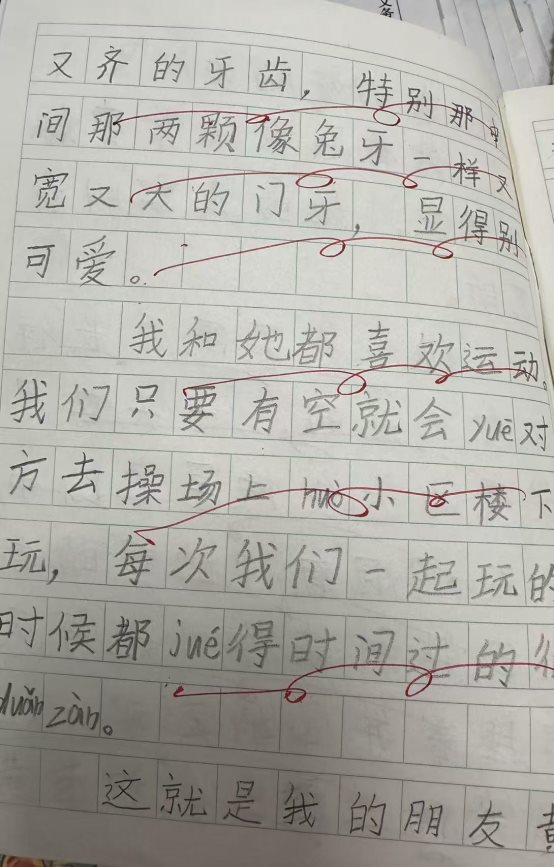 又齐的牙齿，特别那中
间那两颗像兔牙一样又
宽又大的门牙，显得别
可爱。
我和她都喜欢运动。
我们只要有空就会yuē对
方去操场上huò小区楼下
玩，每次我们一起玩的
时候都jué得时间过的很
duǎn zàn。
这就是我的朋友